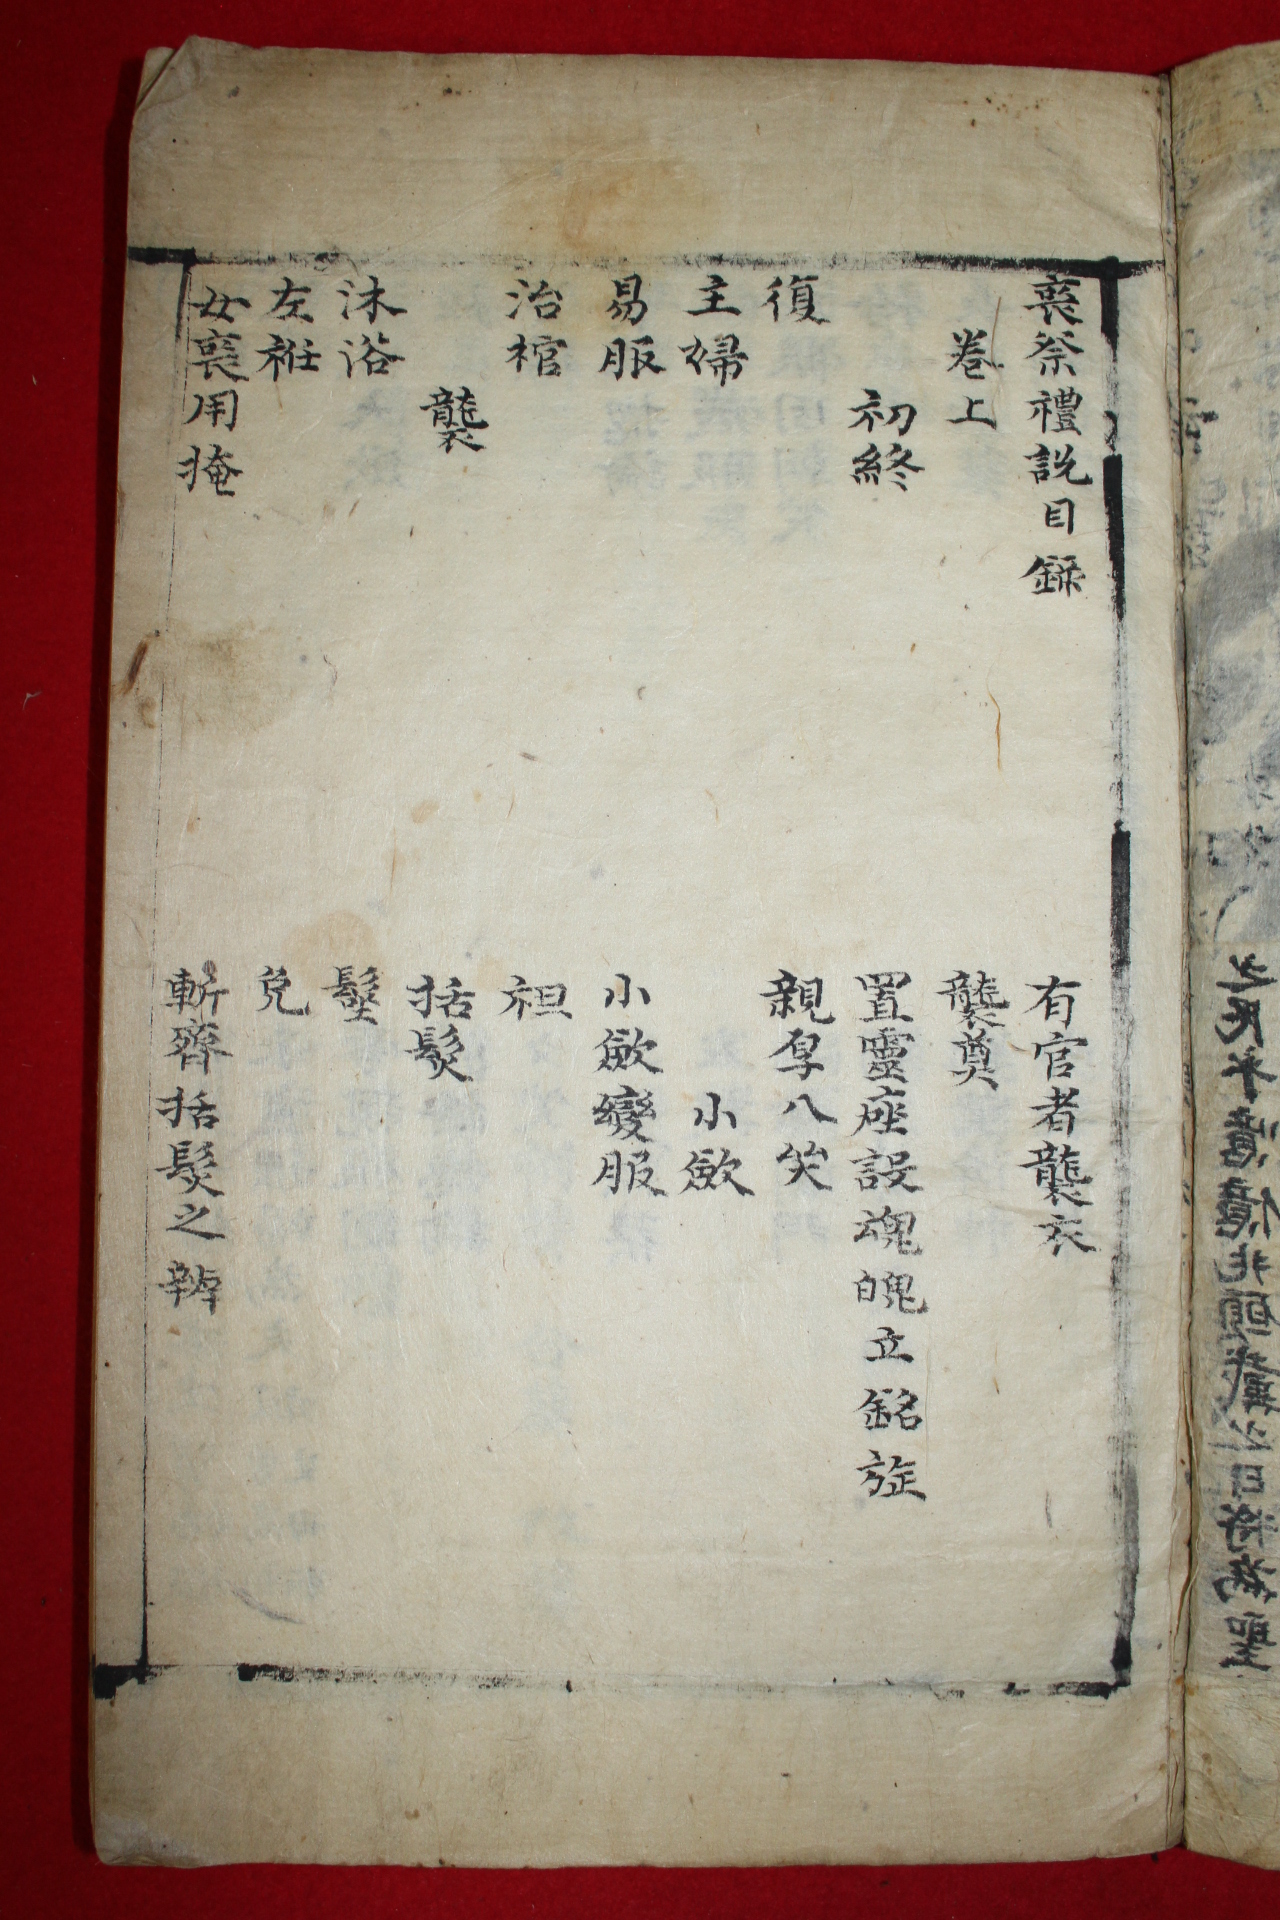 喪祭禮說目錄
卷上
初終
復
主婦
易服
治棺
襲
沐浴
左袵
女喪用掩
有官者襲衣
襲奠
置靈座設魂魄立銘旌
親厚入哭
小斂
小斂變服
袒
括髮
髽
免
斬齊括髮之辨